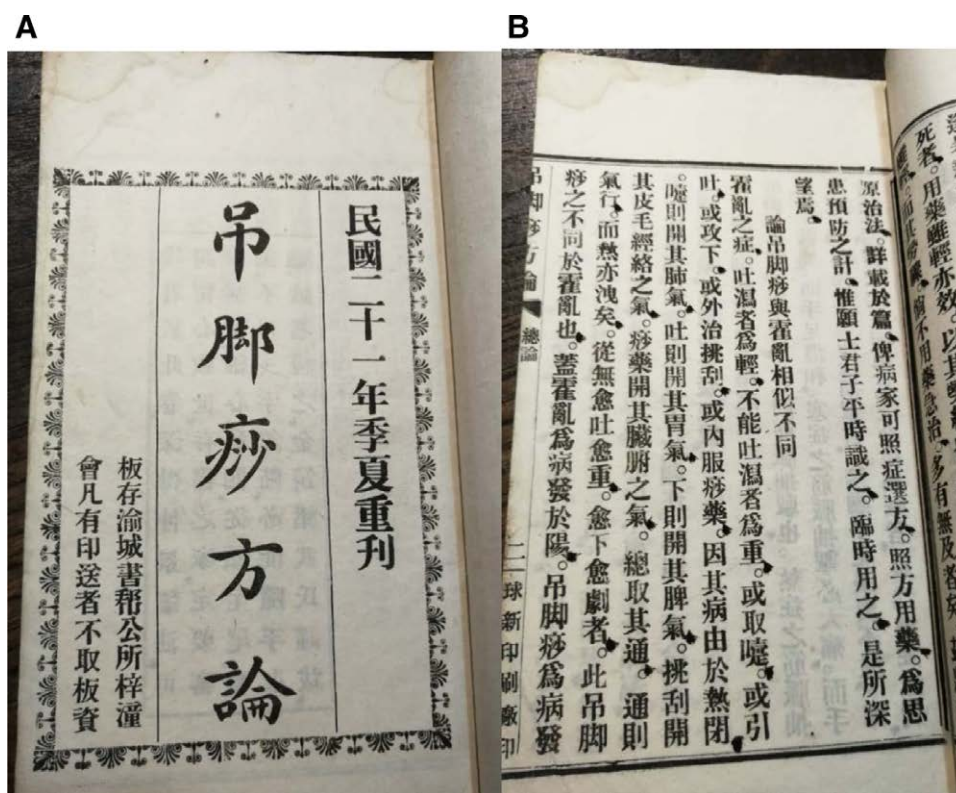 A
民國二十一年季夏重刊
吊脚痧方論
板存渝城書幇公所梓潼
會凡有印送者不取板資
B
死者。用藥雖輕亦效。以其
原治法。詳載於篇。俾病家可照症選方。照方用藥。爲思
患預防之計。惟願士君子平時識之。臨時用之。是所深
望焉。
論吊脚痧與霍亂相似不同
霍亂之症。吐瀉者爲輕。不能吐瀉者爲重。或取嚏。或引
吐。或攻下。或外治挑刮。或內服痧藥。因其病由於熱閉
。嚏則開其肺氣。吐則開其胃氣。下則開其脾氣。挑刮開
其皮毛經絡之氣。痧藥開其臟腑之氣。總取其通。通則
氣行。而熱亦洩矣。從無愈吐愈重。愈下愈劇者。此吊脚
痧之不同於霍亂也。蓋霍亂爲病發於陽。吊脚痧爲病發
吊脚痧方論 總論 二 球新印刷廠印